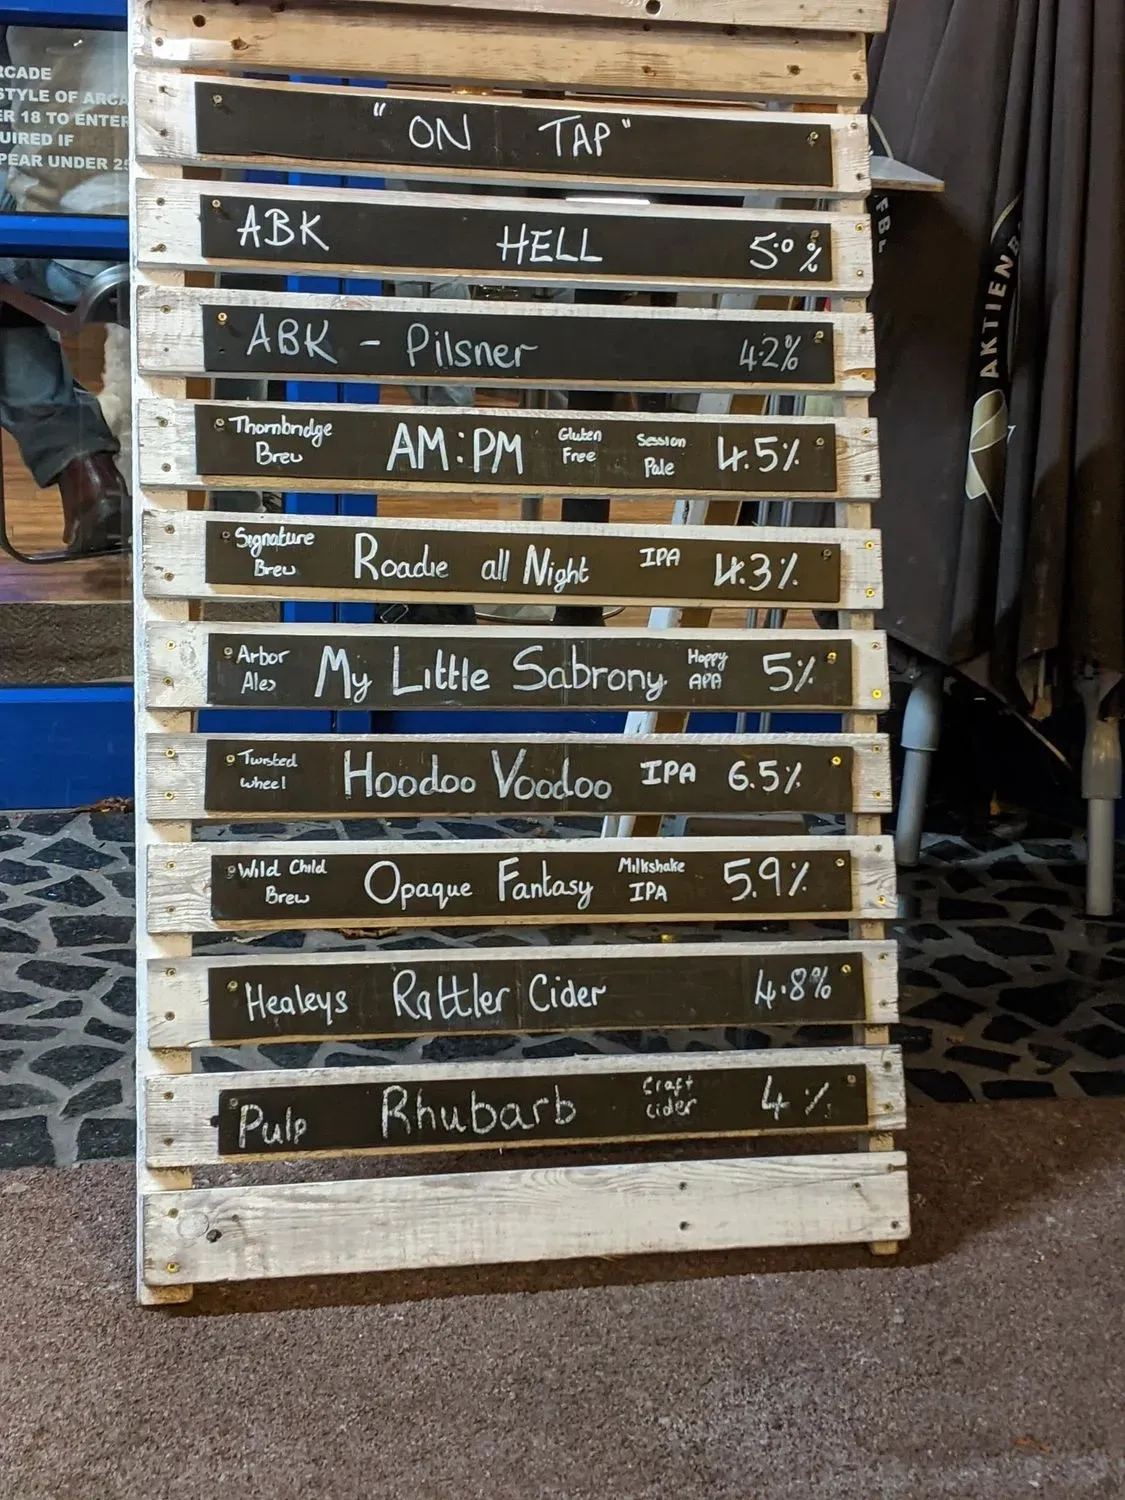 RCADE
STYLE OF ARCA
ER 18 TO ENTER
UIRED IF
PEAR UNDER 25
"ON TAP"
ABK HELL 5.0%
ABK - Pilsner 4.2%
Thornbridge Brew AM:PM Gluten Free Session Pale 4.5%
Signature Brew Roadie all Night IPA 4.3%
Arbor Ales My Little Sabrony Hoppy APA 5%
Twisted Wheel Hoodoo Voodoo IPA 6.5%
Wild Child Brew Opaque Fantasy Milkshake IPA 5.9%
Healeys Rattler Cider 4.8%
Pulp Rhubarb Craft cider 4%
AKTIEN